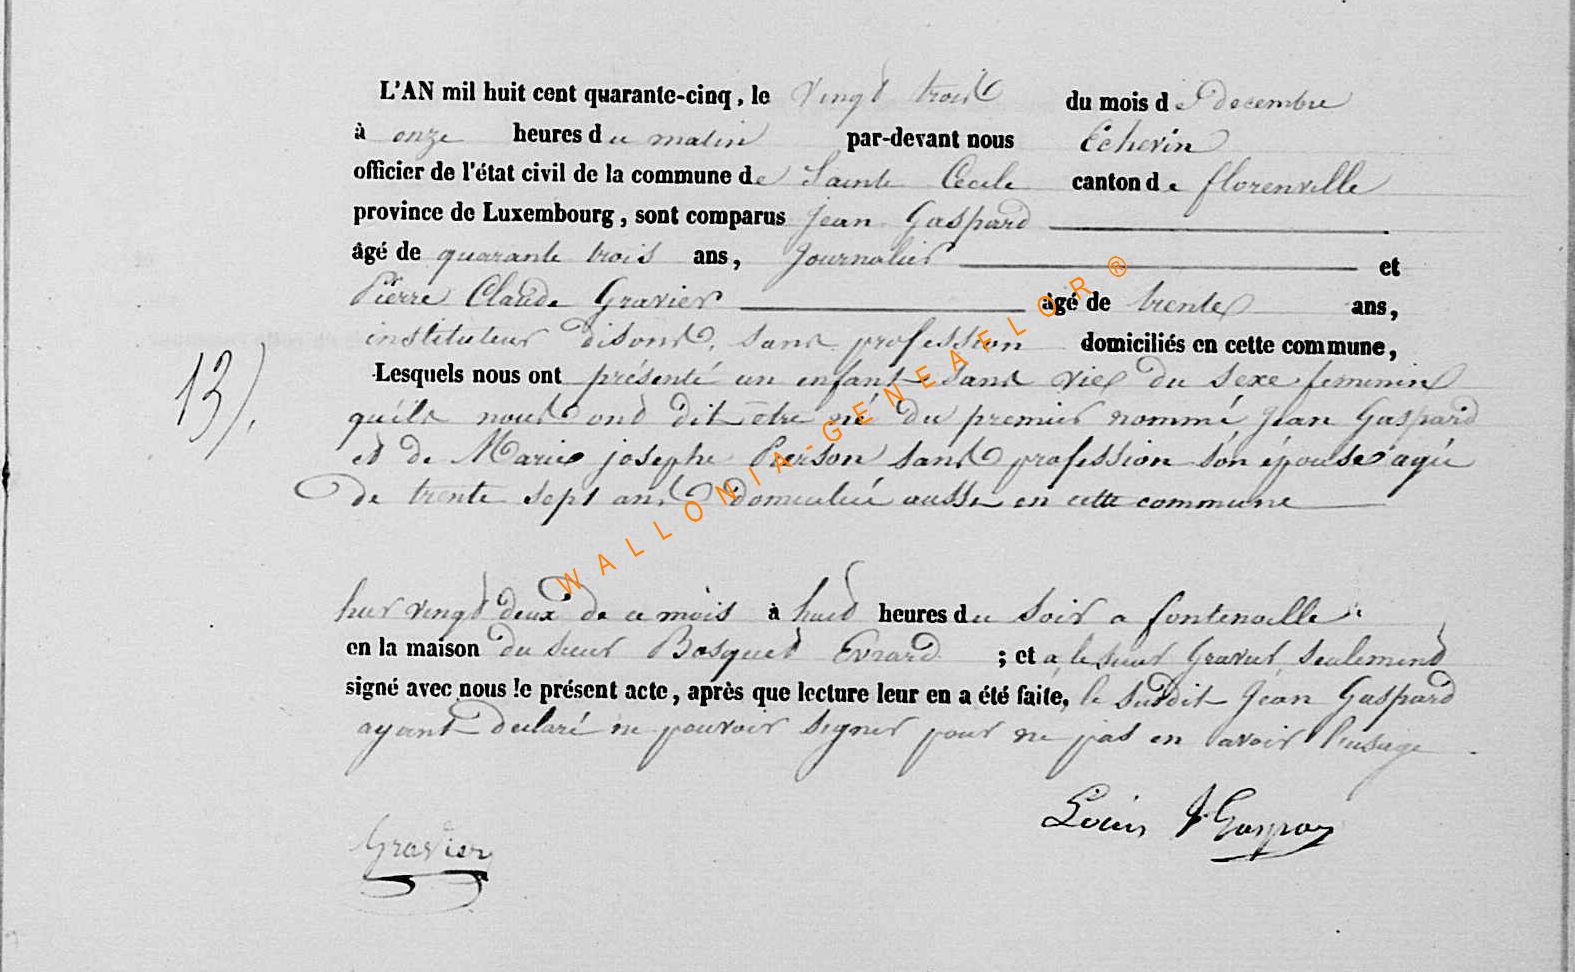 L'AN mil huit cent quarante-cinq, le vingt trois du mois de decembre
à onze heures du matin par-devant nous Echevin
officier de l'état civil de la commune de Sainte Cecile canton de florenville
province de Luxembourg, sont comparus Jean Gaspard
âgé de quarante trois ans, Journalier et
Pierre Claude Gravier âgé de trente ans,
instituteur disons, sans profession domiciliés en cette commune,
Lesquels nous ont présenté un enfant sans vie du sexe feminin
13).
qu'ils nous ont dit être né du premier nommé Jean Gaspard
et de Marie josephe Pierson sans profession son épouse agée
de trente sept ans domiciliée aussi en cette commune
hier vingt deux de ce mois à huit heures du soir a fontenoille
en la maison du sieur Bosquet Evrard ; et a le sieur Gravier seulement
signé avec nous le présent acte, après que lecture leur en a été faite, le susdit Jean Gaspard
ayant declaré ne pouvoir signer pour ne pas en avoir l'usage.
Louis J Gaspar
Gravier
WALLONIA-GENEAELOR®